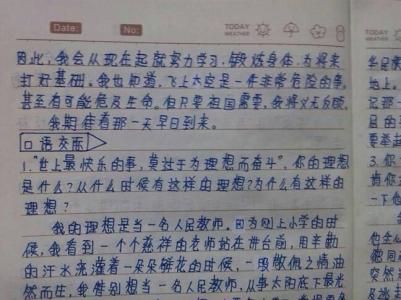 Date: No: TODAY WEATHER
因此,我会从现在起就努力学习,锻炼身体,为将来
打好基础。我也知道,飞上太空是一件非常危险的事,
甚至有可能危及生命。但只要祖国需要,我将义无反顾,
我期待着那一天早日到来。
口语交际
1."世上最快乐的事,莫过于为理想而奋斗"。你的理想
是什么?从什么时候有这样的理想?为什么有这样的
理想?
我的理想是当一名人民教师。因为刚上小学的时
候,我看到一个个慈祥的老师站在讲台前,用辛勤
的汗水浇灌着一朵朵鲜花的时候,一股敬佩之情油
然而生,我特别想当一名人民教师,从事太阳底下最光
TODAY WEATHER
地上。
记那一
3. 你
一下他